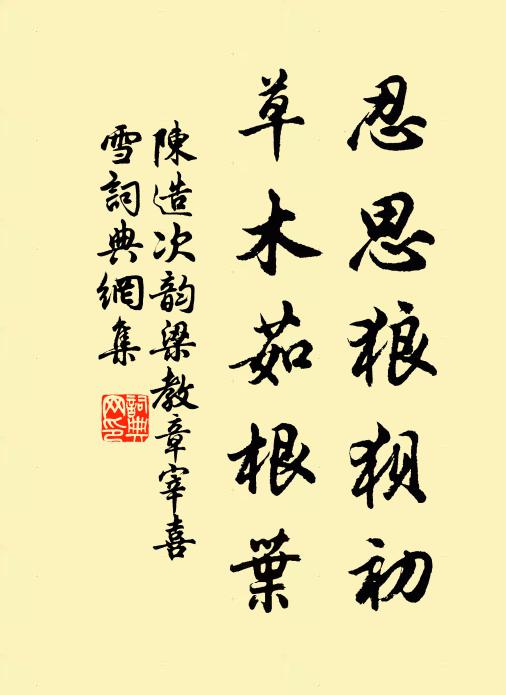 忍思狼狽初
草木茹根葉
陳造次韵梁教章宰喜
雪詞典網集
詞典
网印